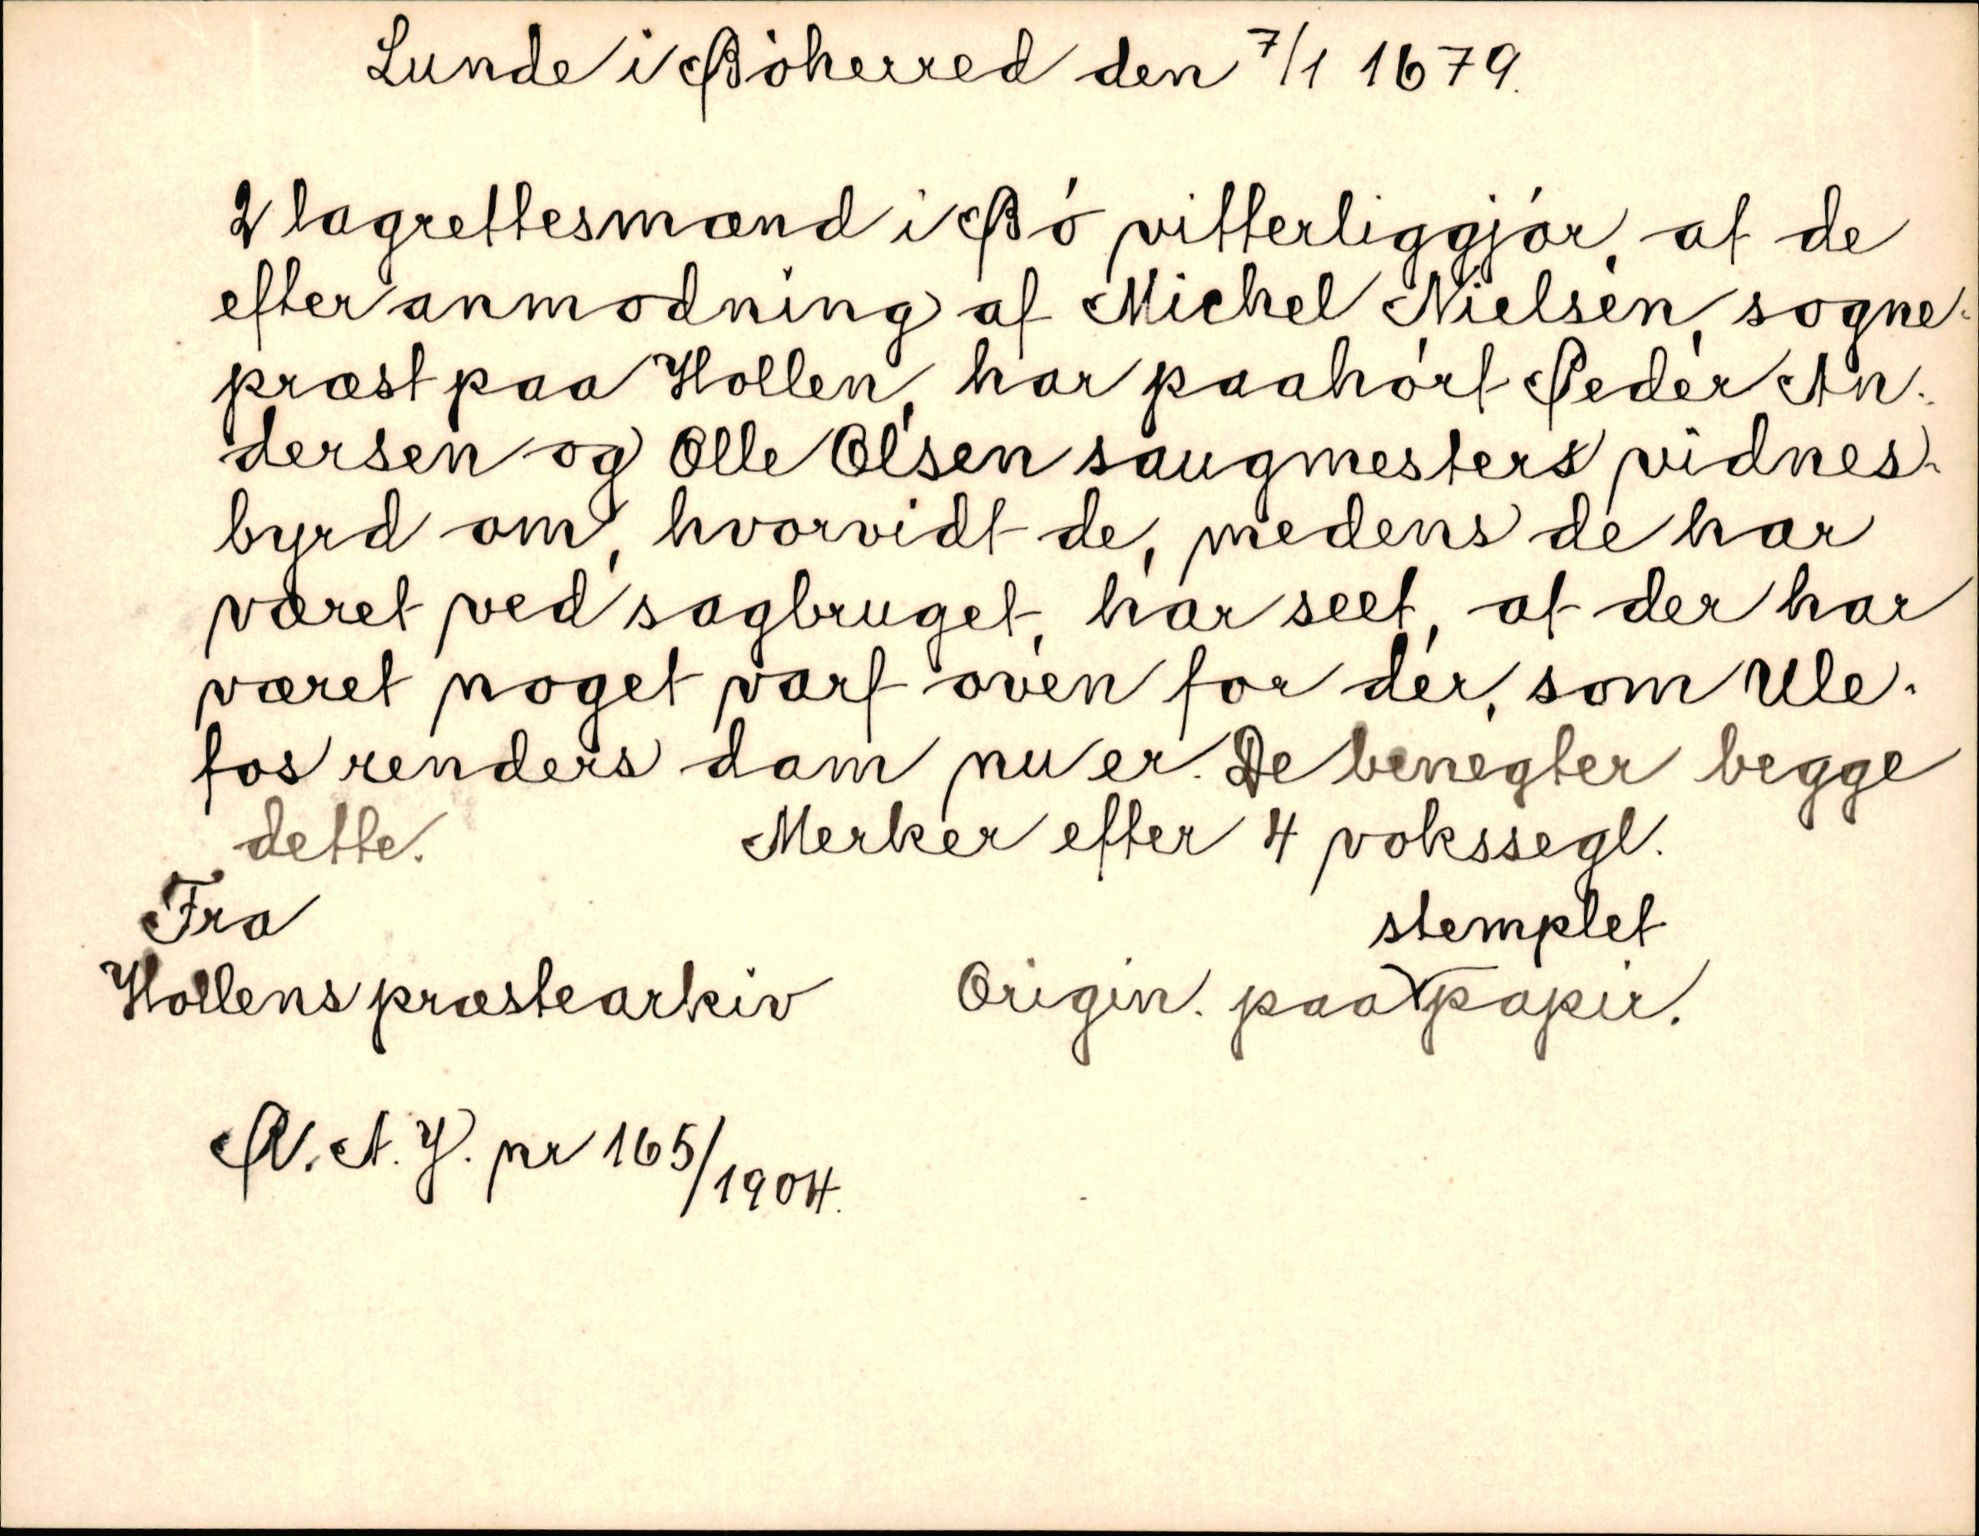 Lunde i Bóherred den 7/1 1679.
2 lagrettesmænd i Bó vitterliggjór, at de
efter anmodning af Michel Nielsen, sogne-
præst paa Hollen, har paahórt Peder An-
dersen og Olle Olsen saugmesters vidnes-
byrd om, hvorvidt de, medens de har
været ved sagbruget, har seet, at der har
været noget varf oven for der, som Ule-
fos renders dam nu er. De benegter begge
dette. Merker efter 4 vokssegl.
Fra
Hollens præstearkiv Origin. paa stemplet papir.
R. A. J. nr 165/1904.